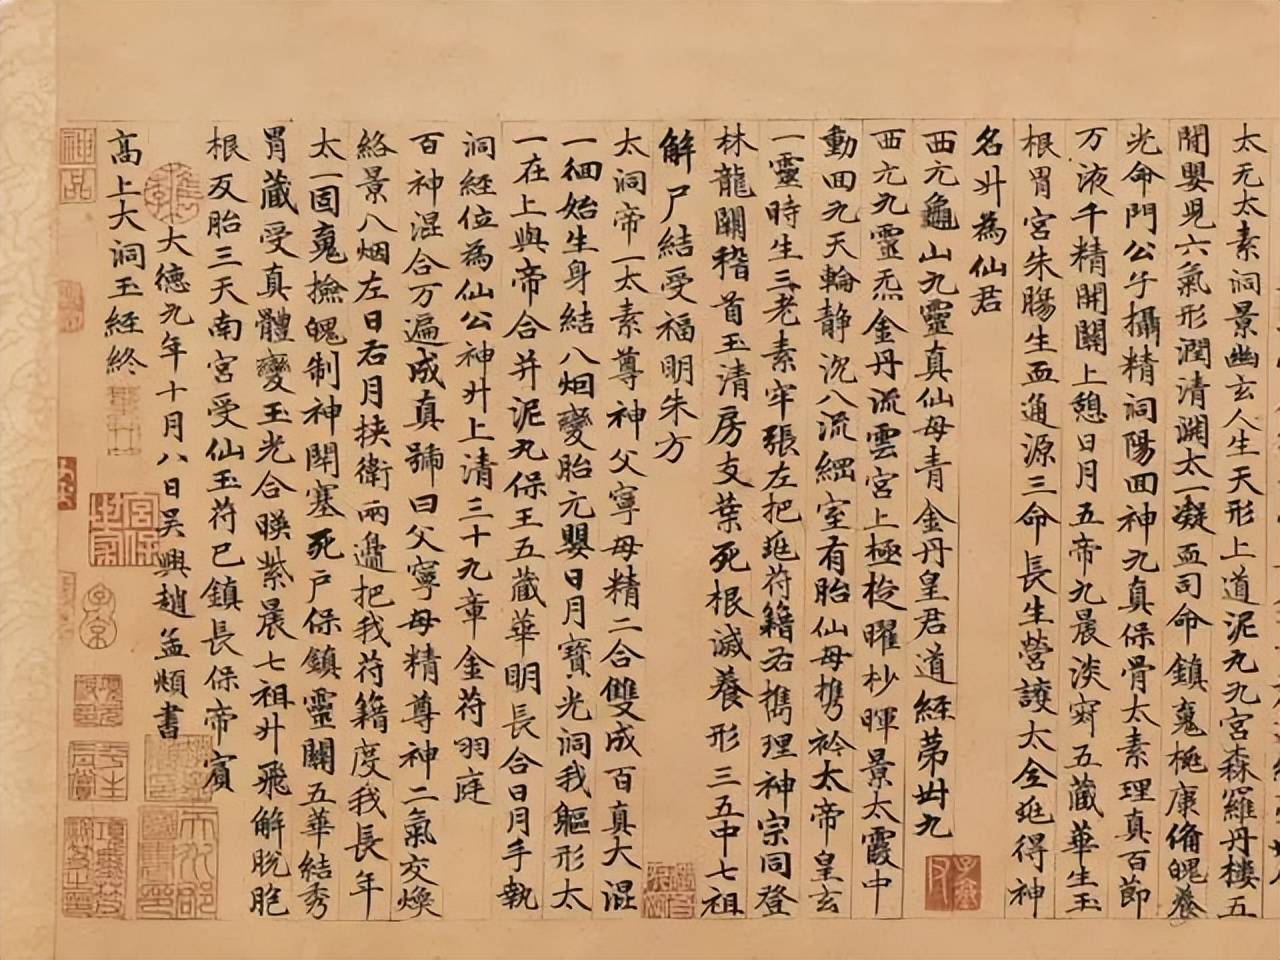 太无太素洞景幽玄人生天形上道泥丸九宮森羅丹樓五
開嬰兒六氣形潤清淵太一凝血司命鎮䰟桃康俻魄養
光命門公子攝精詞陽回神九真保骨太素理真百節
万液千精開關上憩日月五帝九晨淡䆮五藏華生玉
根胃宮朱腸生血通源三命長生營護太仝延得神
名廾為仙君
西元龜山九靈真仙母青金丹皇君道經苐丗九
西元九靈炁金丹流雲宮上極㞐曜杪暉景太霞中
動回九天輪静沉八流綑室有胎仙母擕衿太帝皇玄
一靈時生三老素牢張左把延苻籍右擕理神宗同登
林龍關稽首玉清房支葉死根滅養形三五中七祖
解尸結受福明朱方
太洞帝一太素尊神父寧母精二合雙成百真大混
一徊始生身結八烟變胎元嬰日月寶光洞我軀形太
一在上與帝合并泥丸保王五藏華明長合日月手執
洞經位為仙公神廾上清三十九章金苻羽庭
百神混合万遍成真號曰父寧母精尊神二氣交煥
絡景八烟左日右月挾衛兩邊把我苻籍度我長年
太一固䰟撿魄制神閉塞死戶保鎮靈關五華結秀
胃藏受真體變玉光合暎紫晨七祖廾飛解脫胞
根反胎三天南宮受仙玉苻已鎮長保帝賓
大德九年十月八日吳興趙孟頫書
髙上大洞玉經終
神
品